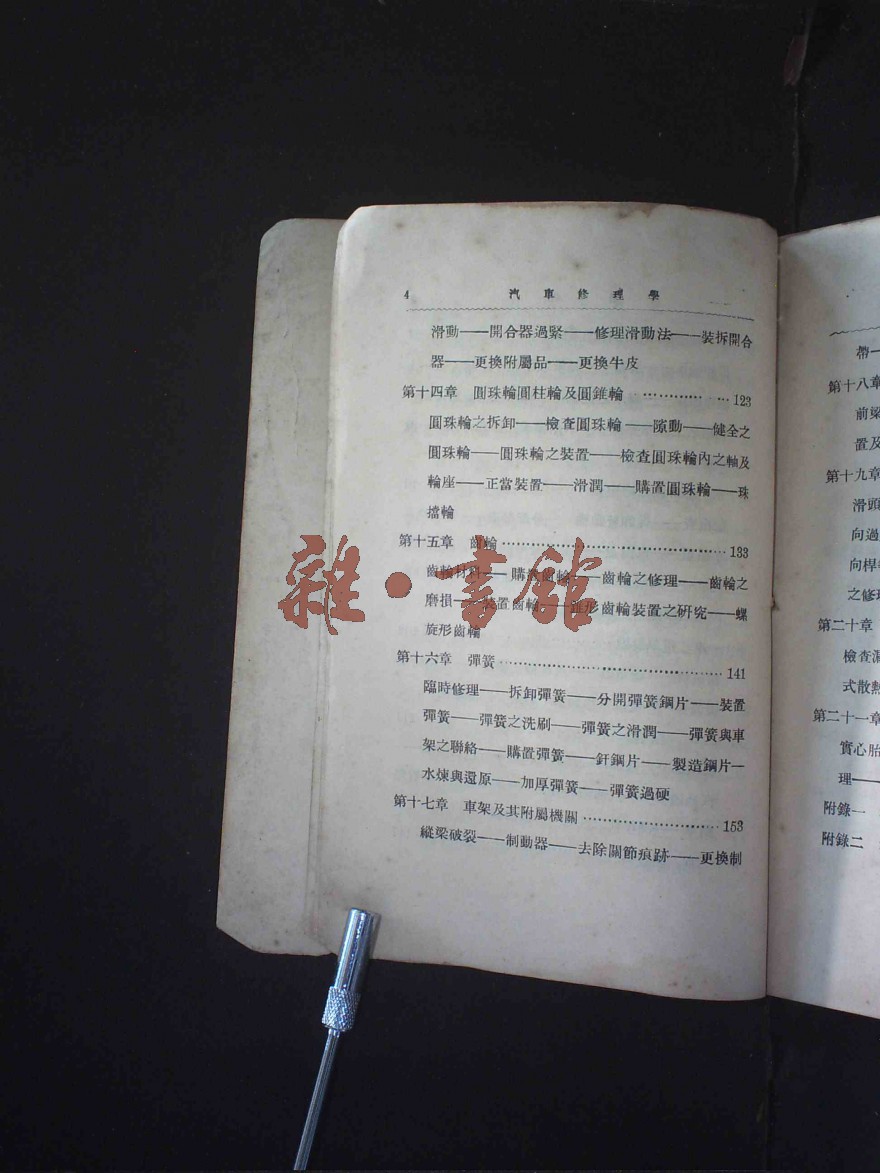 4 汽車修理學
滑動——開合器過緊——修理滑動法——裝拆開合
器——更換附屬品——更換牛皮
第十四章 圓珠輪圓柱輪及圓錐輪 ……………123
圓珠輪之拆卸——檢查圓珠輪——隙動——健全之
圓珠輪——圓珠輪之裝置——檢查圓珠輪內之軸及
輪座——正當裝置——滑潤——購置圓珠輪——珠
擋輪
第十五章 齒輪………………………………133
齒輪材料——購置齒輪——齒輪之修理——齒輪之
磨損——裝置齒輪——錐形齒輪裝置之研究——螺
旋形齒輪
第十六章 彈簧………………………………141
臨時修理——拆卸彈簧——分開彈簧鋼片——裝置
彈簧——彈簧之洗刷——彈簧之滑潤——彈簧與車
架之聯絡——購置彈簧——釬鋼片——製造鋼片—
水煉與還原——加厚彈簧——彈簧過硬
第十七章 車架及其附屬機關…………………153
縱梁破裂——制動器——去除關節痕跡——更換制
帶一
第十八章
前梁
置及
第十九章
滑頭
向過
向桿
之修理
第二十章
檢查漏
式散熱
第二十一章
實心胎
理——
附錄一
附錄二
雜·書館